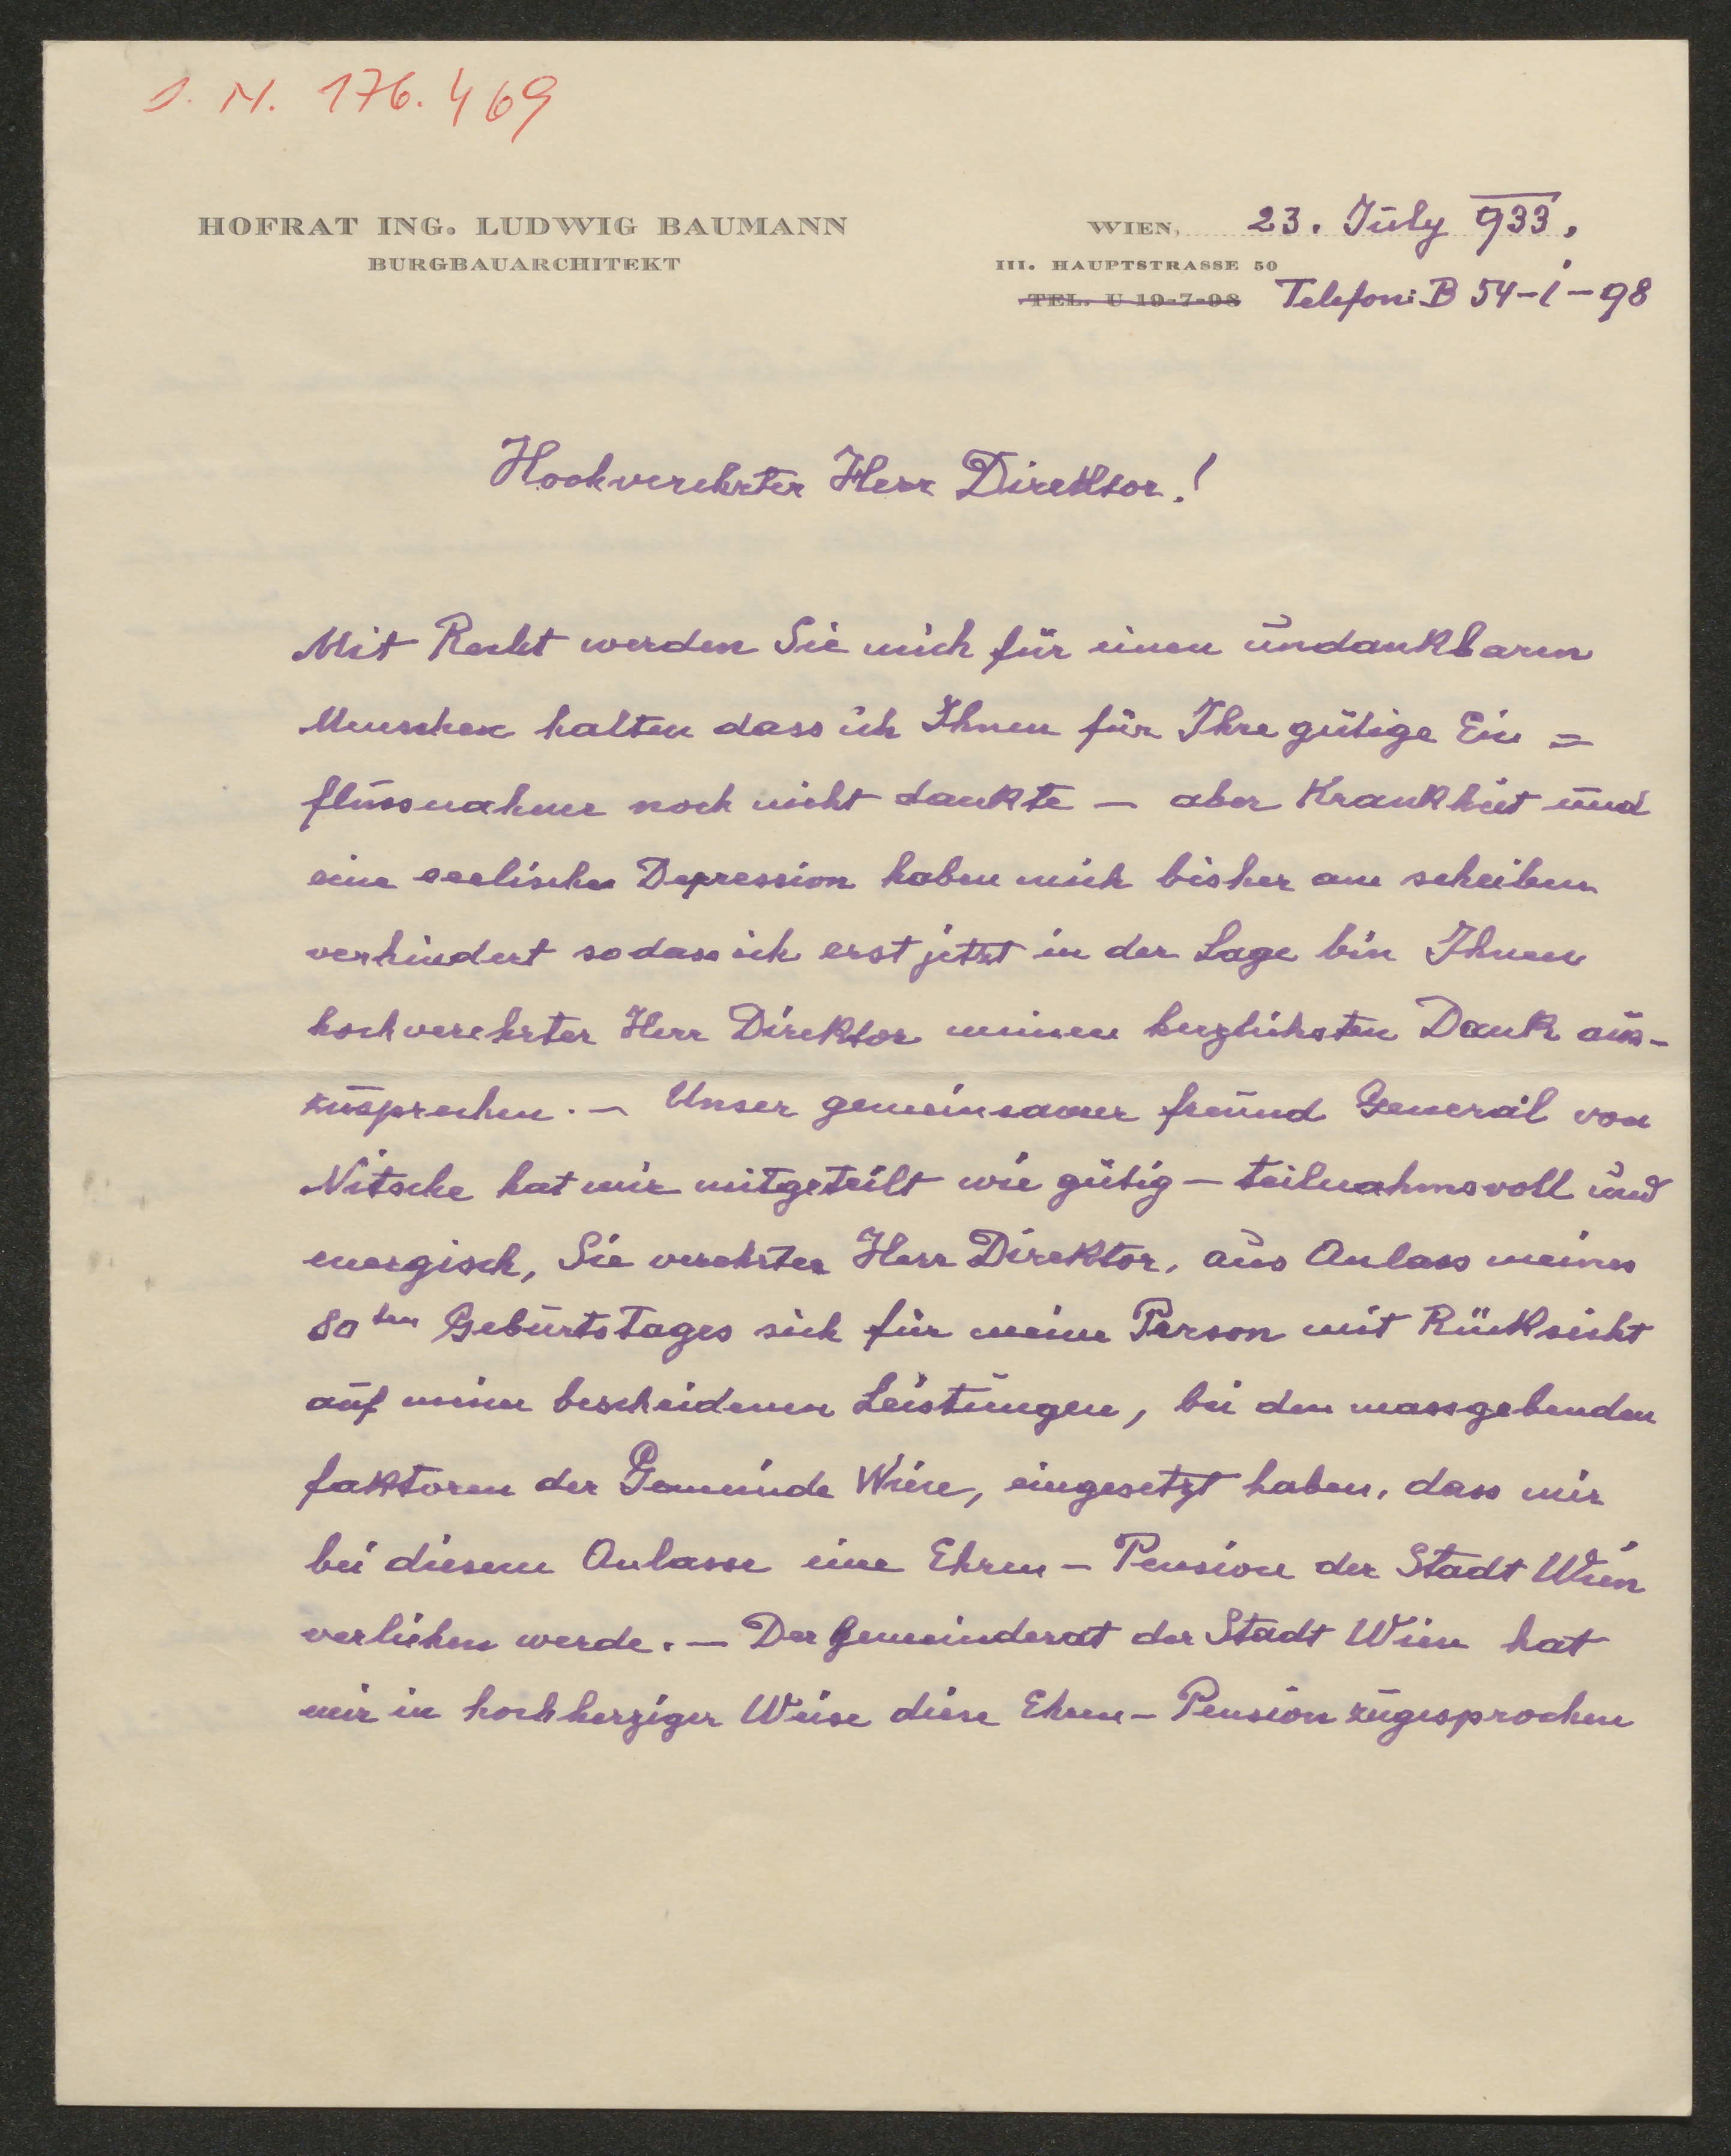 J. N. 176.469
HOFRAT ING. LUDWIG BAUMANN
BURGBAUARCHITEKT
WIEN, 23. July 933,
III. HAUPTSTRASSE 50
TEL. U 19-7-98 Telefon: B 54-1-98
Hochverehrter Herr Direktor!
Mit Recht werden Sie mich für einen undankbaren
Menschen halten dass ich Ihnen für Ihre gütige Ein=
flussnahme noch nicht dankte — aber Krankheit und
eine seelische Depression haben mich bisher am scheiben
verhindert sodass ich erst jetzt in der Lage bin Ihnen
hochverehrter Herr Direktor meinen herzlichsten Dank aus-
zusprechen. — Unser gemeinsamer freund General von
Nitsche hat mir mitgeteilt wie gütig — teilnahmsvoll und
energisch, Sie verehrter Herr Direktor, aus Anlass meines
80ten Geburtstages sich für meine Person mit Rücksicht
auf meine bescheidenen Leistungen, bei den massgebenden
faktoren der Gemeinde Wien, eingesetzt haben, dass mir
bei diesem Anlasse eine Ehren-Pension der Stadt Wien
verliehen werde. — Der Gemeinderat der Stadt Wien hat
mir in hochherziger Weise diese Ehren-Pension zugesprochen